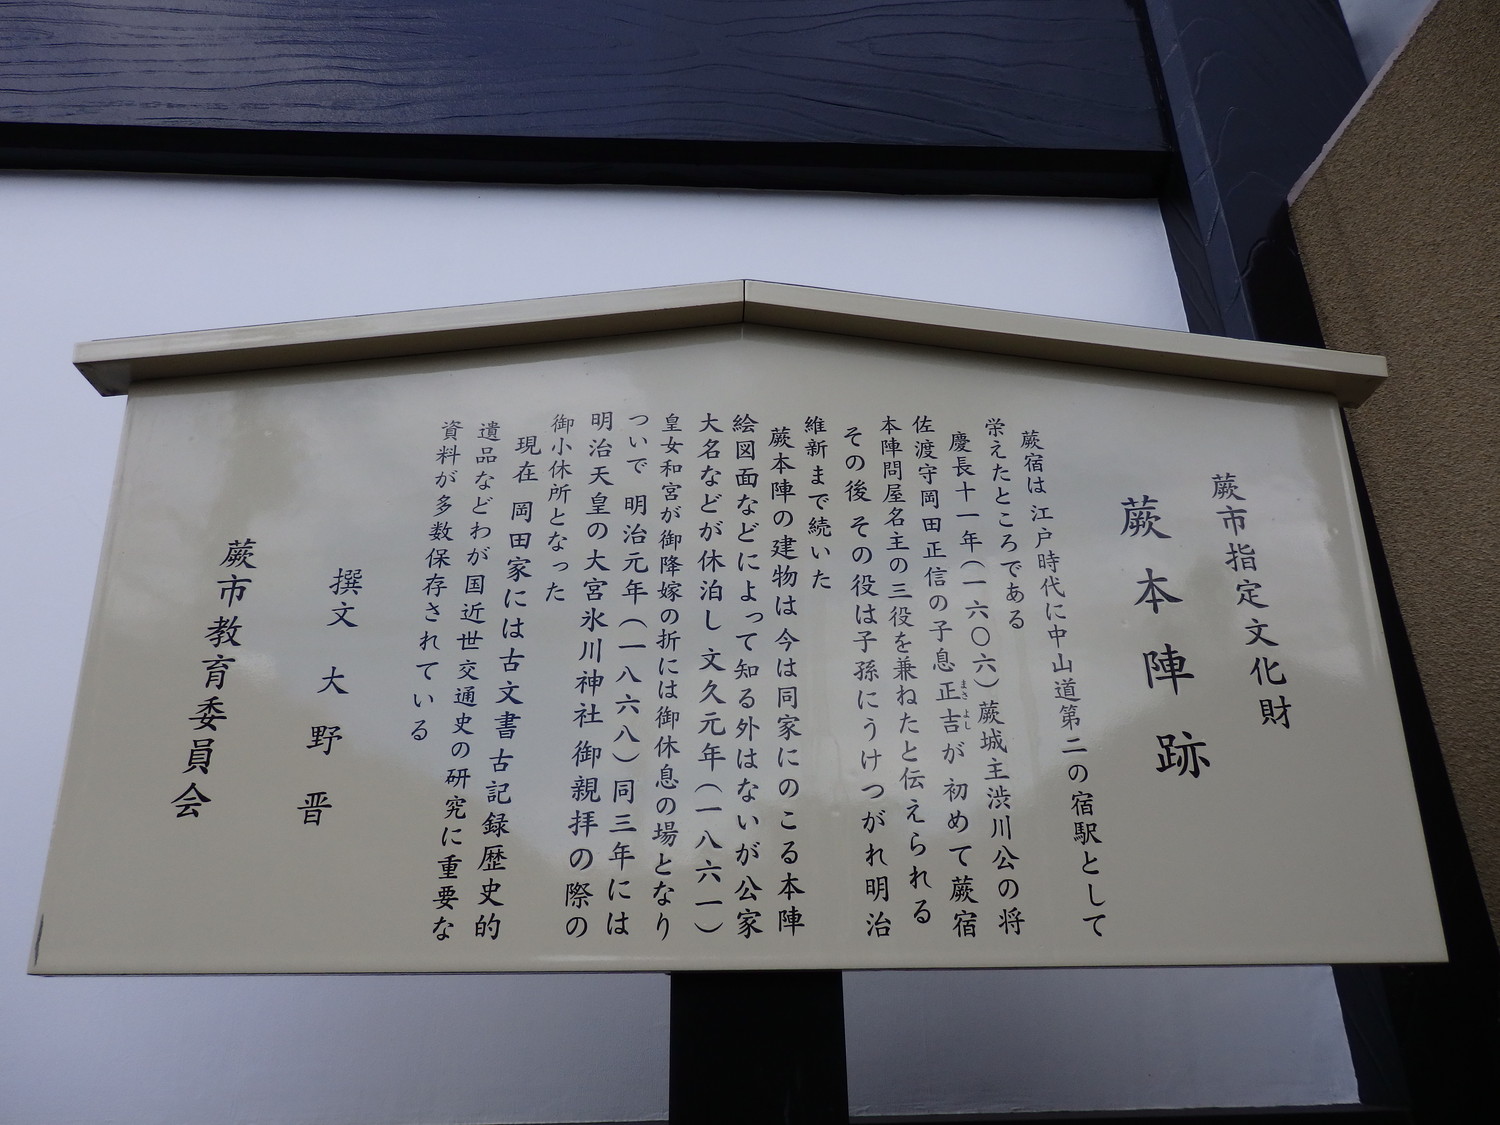 蕨市指定文化財
蕨本陣跡
蕨宿は 江戸時代に中山道第二の宿駅として
栄えたところである
慶長十一年(一六〇六)蕨城主渋川公の将
佐渡守岡田正信の子息正吉が 初めて蕨宿
まさよし
本陣問屋名主の三役を兼ねたと伝えられる
その後 その役は子孫にうけつがれ明治
維新まで続いた
蕨本陣の建物は 今は同家にのこる本陣
絵図面などによって知る外はないが公家
大名などが休泊し 文久元年(一八六一)
皇女和宮が御降嫁の折には御休息の場となり
ついで 明治元年(一八六八)同三年には
明治天皇の大宮氷川神社御親拝の際の
御小休所となった
現在 岡田家には古文書古記録歴史的
遺品などわが国近世交通史の研究に重要な
資料が多数保存されている
撰文 大野晋
蕨市教育委員会